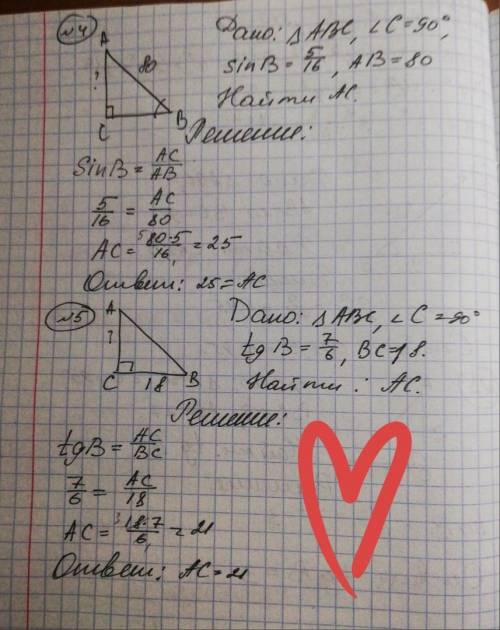 №4
Дано: △ABC, ∠C=90°,
sinB = 5/16, AB=80
Найти AC.
A
80
?
C
B
Решение:
SinB = AC/AB
5/16 = AC/80
AC = 80·5/16 = 25
5
1
Ответ: 25=AC
№5
Дано: △ABC, ∠C=90°
tgB = 7/6, BC=18.
Найти: AC.
A
?
C
18
B
Решение:
tgB = AC/BC
7/6 = AC/18
AC = 18·7/6 = 21
3
1
Ответ: AC=21